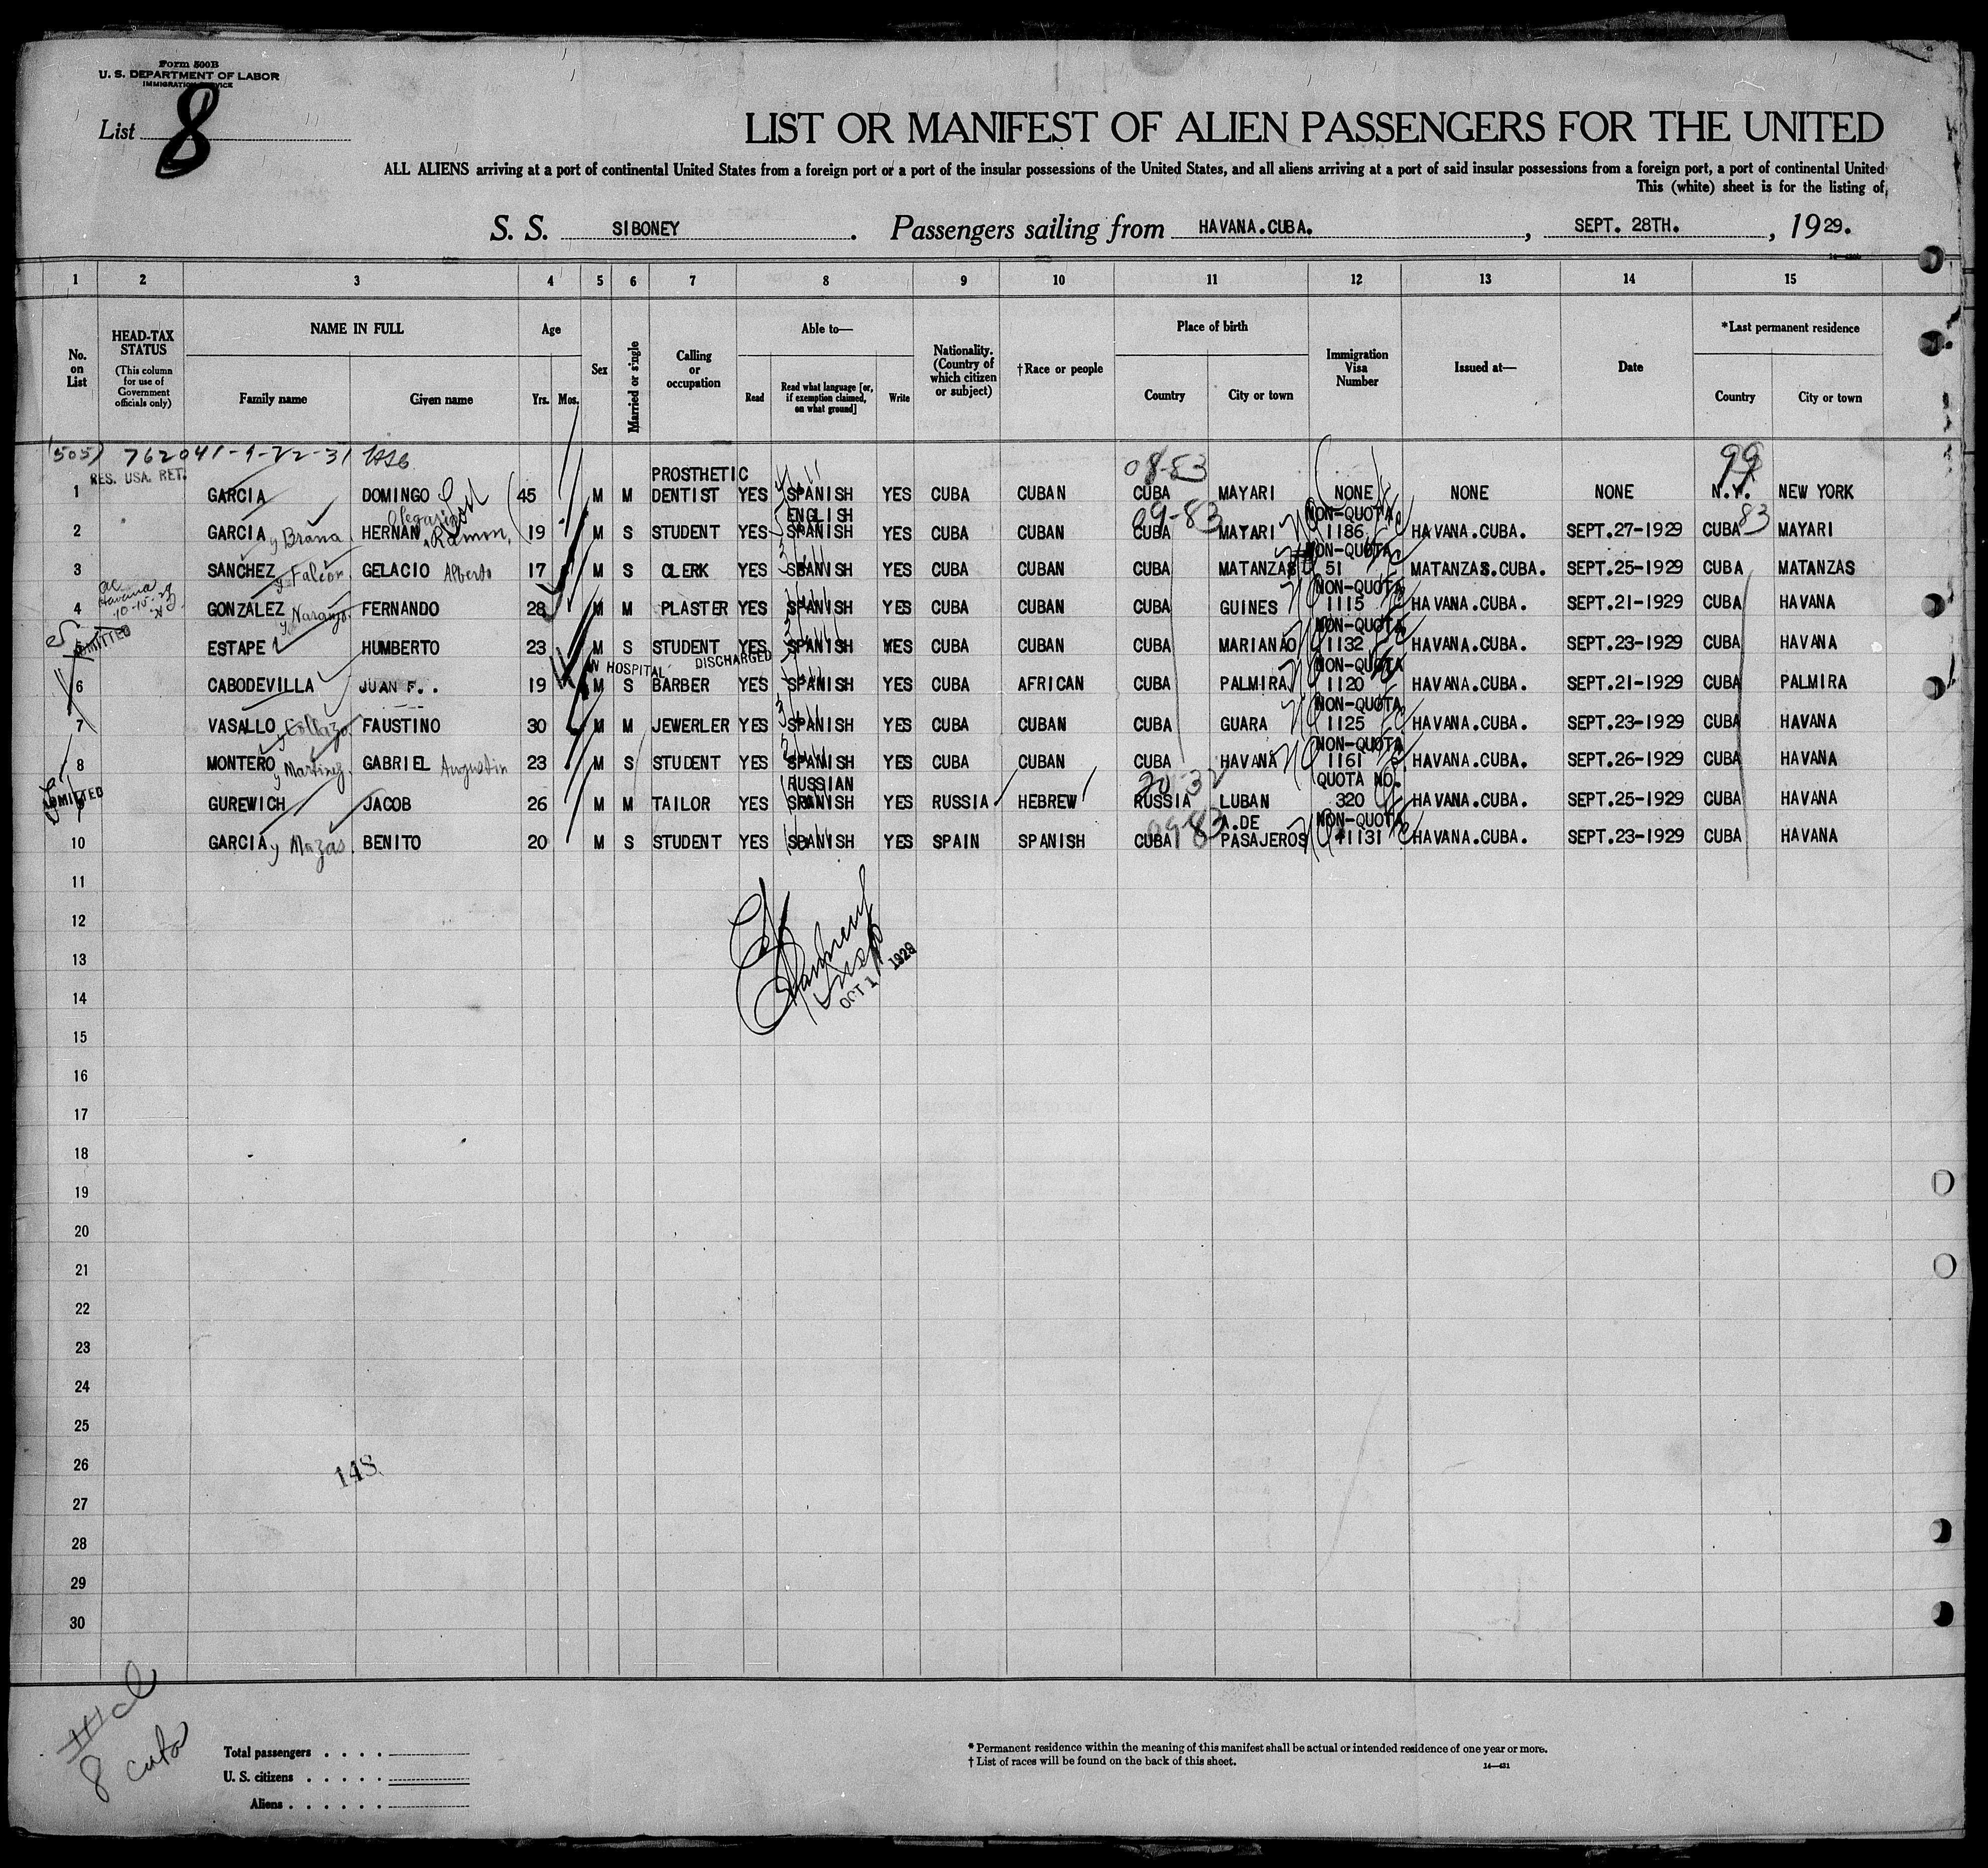 Form 500B
U. S. DEPARTMENT OF LABOR
IMMIGRATION SERVICE
List 8
LIST OR MANIFEST OF ALIEN PASSENGERS FOR THE UNITED
ALL ALIENS arriving at a port of continental United States from a foreign port or a port of the insular possessions of the United States, and all aliens arriving at a port of said insular possessions from a foreign port, a port of continental United
This (white) sheet is for the listing of
S. S. SIBONEY. Passengers sailing from HAVANA.CUBA., SEPT. 28TH., 1929.
1 2 3 4 5 6 7 8 9 10 11 12 13 14 15
No. on List
HEAD-TAX STATUS
(This column for use of Government officials only)
NAME IN FULL
Family name Given name
Age
Yrs. Mos.
Sex
Married or single
Calling or occupation
Able to—
Read
Read what language [or, if exemption claimed, on what ground]
Write
Nationality. (Country of which citizen or subject)
†Race or people
Place of birth
Country City or town
Immigration Visa Number
Issued at—
Date
*Last permanent residence
Country City or town
(505) 762041-9-22-31
RES. USA. RET.
08-83 99
1 GARCIA DOMINGO 45 M M PROSTHETIC DENTIST YES SPANISH ENGLISH YES CUBA CUBAN CUBA MAYARI NONE NONE NONE N.Y. NEW YORK
09-83 83
2 GARCIA y Brana HERNAN Olegario Ramon 19 M S STUDENT YES SPANISH YES CUBA CUBAN CUBA MAYARI NON-QUOTA 1186 HAVANA.CUBA. SEPT.27-1929 CUBA MAYARI
3 SANCHEZ y Falcon GELACIO Alberto 17 M S CLERK YES SPANISH YES CUBA CUBAN CUBA MATANZAS NON-QUOTA 51 MATANZAS.CUBA. SEPT.25-1929 CUBA MATANZAS
Havana 10-15-29
4 GONZALEZ y Naranjo FERNANDO 28 M M PLASTER YES SPANISH YES CUBA CUBAN CUBA GUINES NON-QUOTA 1115 HAVANA.CUBA. SEPT.21-1929 CUBA HAVANA
ADMITTED
5 ESTAPE HUMBERTO 23 M S STUDENT YES SPANISH YES CUBA CUBAN CUBA MARIANAO NON-QUOTA 1132 HAVANA.CUBA. SEPT.23-1929 CUBA HAVANA
IN HOSPITAL DISCHARGED
6 CABODEVILLA JUAN F.. 19 M S BARBER YES SPANISH YES CUBA AFRICAN CUBA PALMIRA NON-QUOTA 1120 HAVANA.CUBA. SEPT.21-1929 CUBA PALMIRA
7 VASALLO y Collazo FAUSTINO 30 M M JEWERLER YES SPANISH YES CUBA CUBAN CUBA GUARA NON-QUOTA 1125 HAVANA.CUBA. SEPT.23-1929 CUBA HAVANA
8 MONTERO y Martinez GABRIEL Augustin 23 M S STUDENT YES SPANISH YES CUBA CUBAN CUBA HAVANA NON-QUOTA 1161 HAVANA.CUBA. SEPT.26-1929 CUBA HAVANA
ADMITTED
20-32
9 GUREWICH JACOB 26 M M TAILOR YES RUSSIAN SPANISH YES RUSSIA HEBREW RUSSIA LUBAN QUOTA NO. 320 HAVANA.CUBA. SEPT.25-1929 CUBA HAVANA
09-83
10 GARCIA y Mazas BENITO 20 M S STUDENT YES SPANISH YES SPAIN SPANISH CUBA A.DE PASAJEROS NON-QUOTA 1131 HAVANA.CUBA. SEPT.23-1929 CUBA HAVANA
11
12
13
OCT 1 1929
14
15
16
17
18
19
20
21
22
23
24
25
26
148
27
28
29
30
8 cuba
Total passengers . . . .
U. S. citizens . . . . .
Aliens . . . . . .
* Permanent residence within the meaning of this manifest shall be actual or intended residence of one year or more.
† List of races will be found on the back of this sheet.
14—431